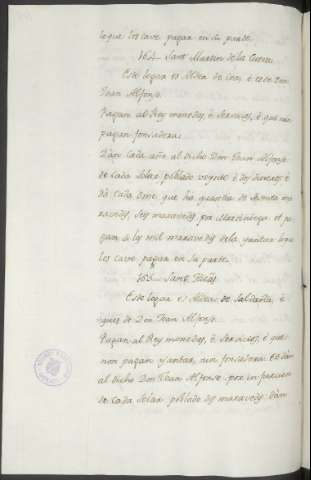 loque los cave pagar en su parte.
162. Sant Martin de la Cueza
Este logar es Aldea de , è es de Don
Juan Alfonso.
Pagan al Rey monedas, è servicios, è que non
pagan fonsadera.
Dan Cada año al dicho Don Juan Alfonso
de Cada Solar poblado veynte è dos dineros, è
dà Cada ome que ha quantia de Seenta ma
ravedis, Seis maravedis por Martiniega, et pa
gan à los mil maravedis de la yantar loque
les cave pagar en su parte.
163. Sant
Este logar è Aldea de Saldaña, è
de Don Juan Alfonso.
Pagan al Rey monedas, è servicios, è que
non pagan yantar, nin fonsadera. Et dan
al dicho Don Juan Alfonso por
de Cada Solar poblado dos maravedis. Dan